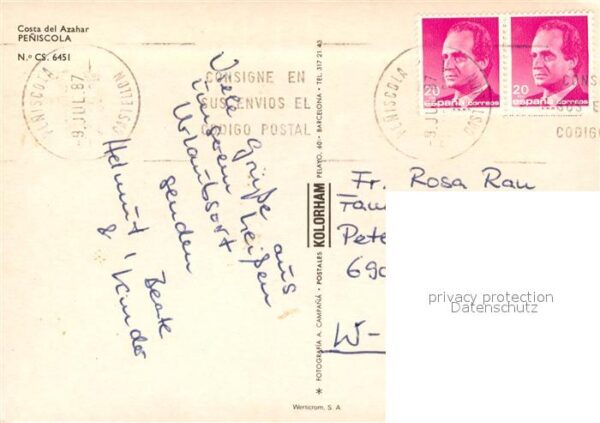 Costa del Azahar
PEÑISCOLA
N.º CS. 6451
PEÑISCOLA
-9.JUL.87
CASTELLON
CONSIGNE EN
SUS ENVIOS EL
CODIGO POSTAL
PEÑISCOLA
-9.JUL.87
CONS
SUS E
CODIGO
20
españa correos
20
españa correos
Viele Grüße aus
unserem heißen
Urlaubsort
senden
Beate
Helmut & Kinder
FOTOGRAFIA A. CAMPAÑÁ · POSTALES KOLORHAM PELAYO, 60 · BARCELONA · TEL. 317 21 43
Fr. Rosa Rau
Fam
Pete
690
W-
privacy protection
Datenschutz
Wertcrom, S. A.